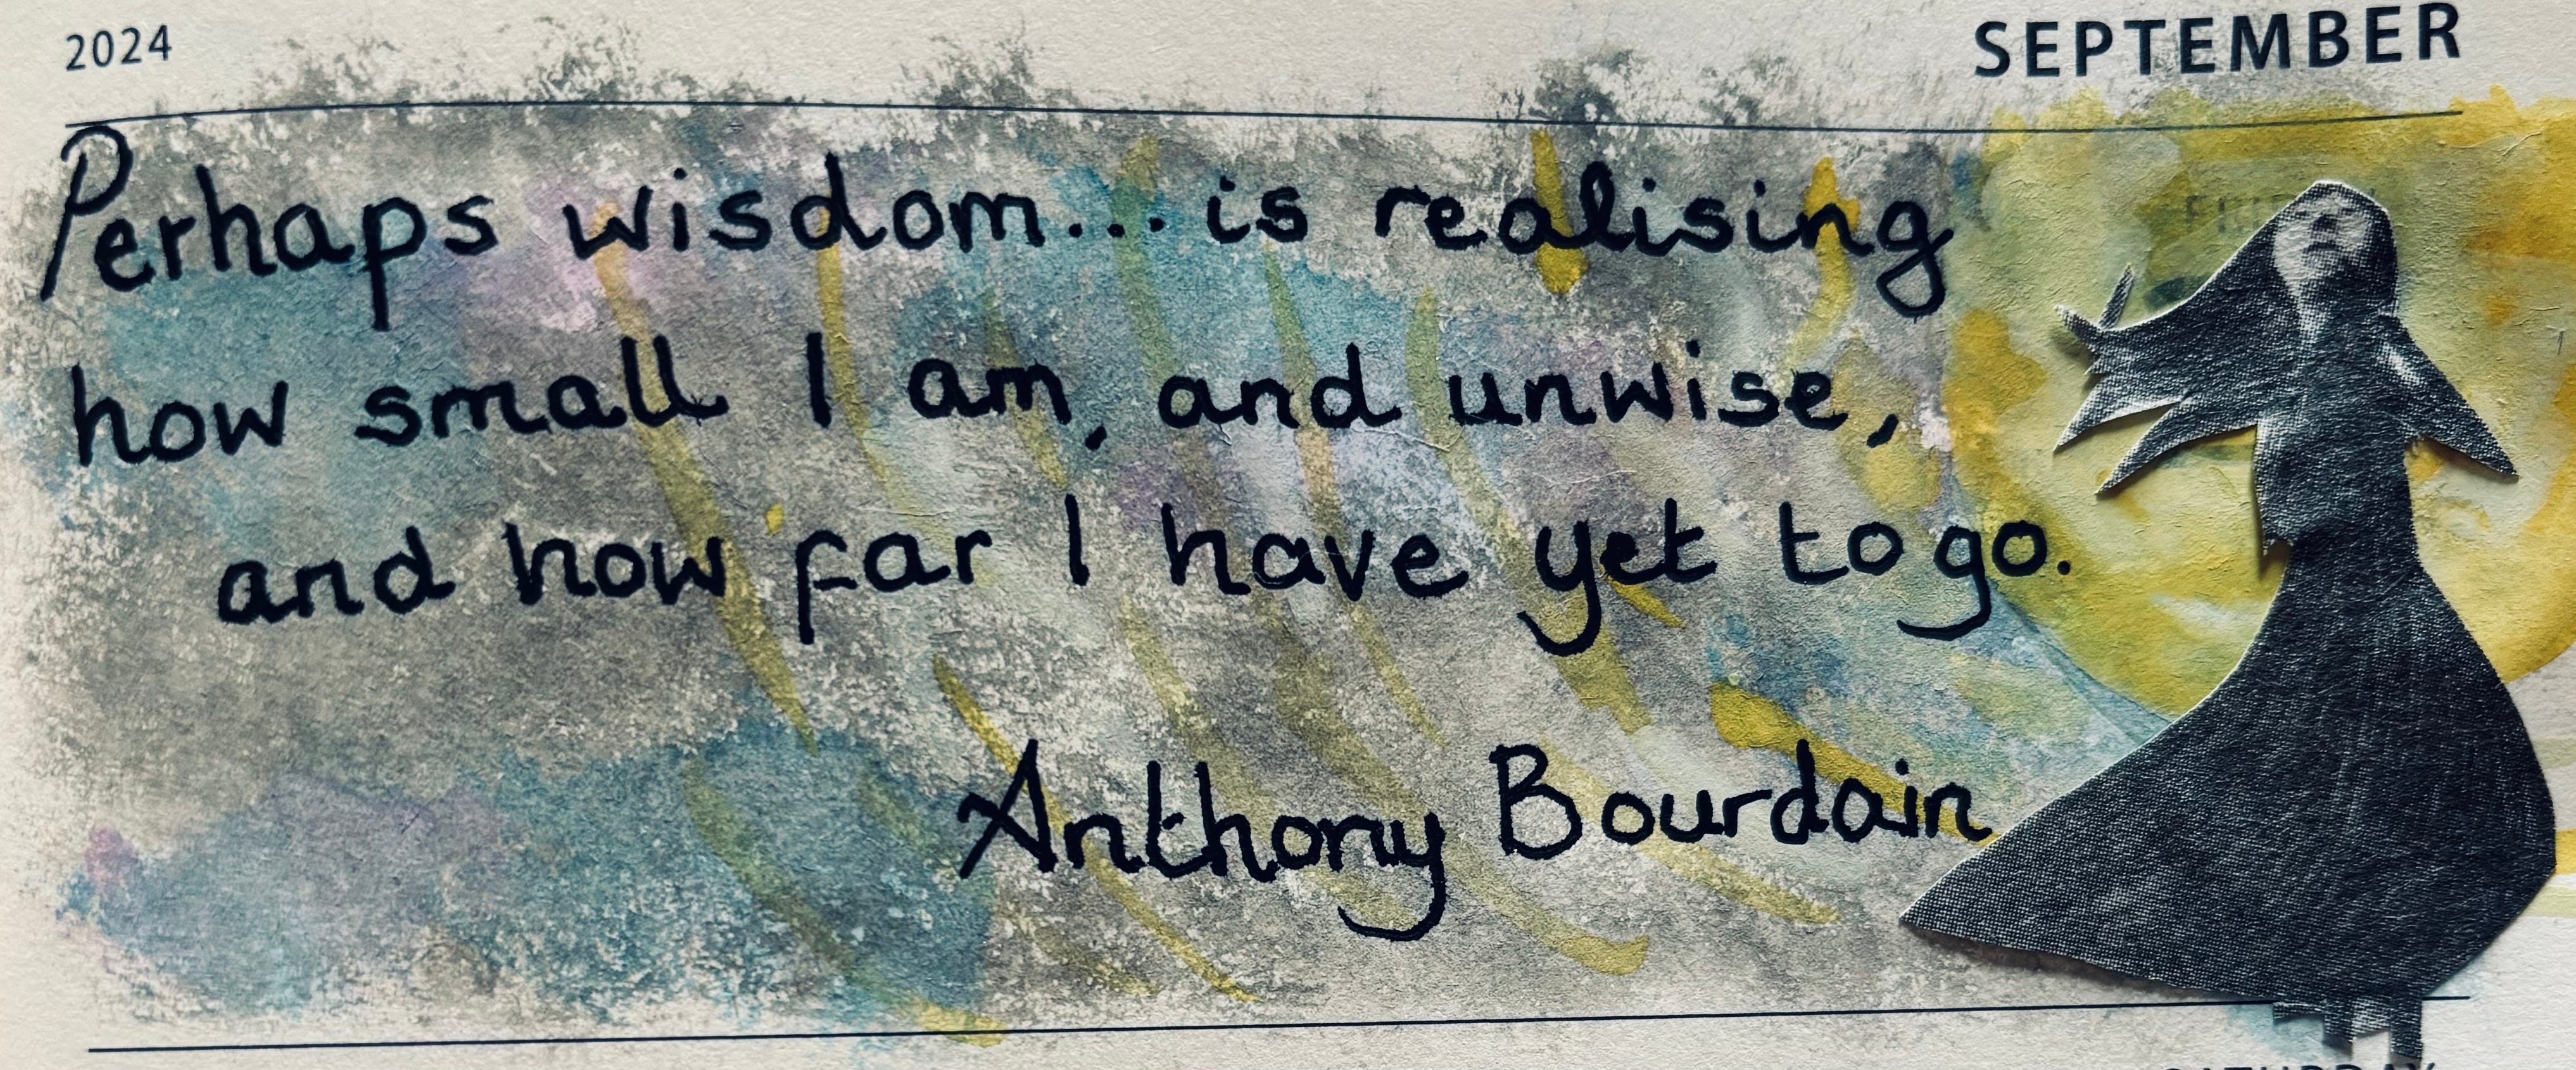 2024 SEPTEMBER
Perhaps wisdom... is realising
how small I am, and unwise,
and how far I have yet to go.
Anthony Bourdain
SATURDAY